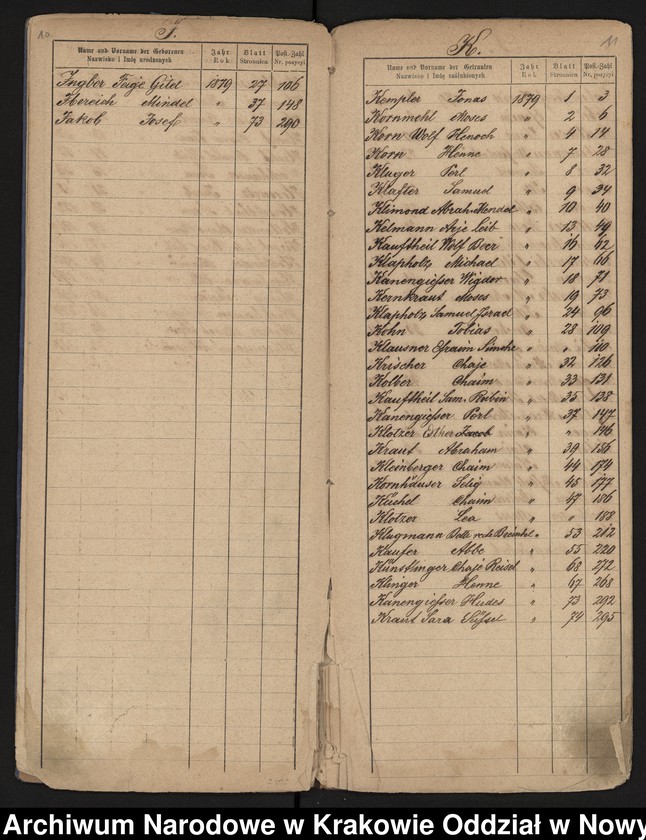 10.
I.
Name und Vorname der Geborenen
Nazwisko i Imię urodzonych
Jahr
Rok
Blatt
Stronnica
Post-Zahl
Nr. pozycyi
Ingber Feige Gitel 1879 27 106
Mindel " 37 148
Jakob Josef " 73 290
11
K.
Name und Vorname der Getrauten
Nazwisko i Imię zaślubionych
Jahr
Rok
Blatt
Stronnica
Post-Zahl
Nr. pozycyi
Kempler Jonas 1879 1 3
Kornmehl Moses " 2 6
Korn Wolf Henoch " 4 14
Korn Henne " 7 28
Kluger Perl " 8 32
Klafter Samuel " 9 34
Klimond Abrah. Mendel " 10 40
Kelmann Arje Leib " 13 49
Kauftheil Wolf Beer " 16 62
Klapholz Michael " 17 66
Kanengiesser Wigdor " 18 71
Kernkraut Moses " 19 73
Klapholz Samuel Israel " 24 96
Kohn Tobias " 28 109
Klausner Efraim Simche " " 110
Krischer Chaje " 32 126
Kolber Chaim " 33 131
Kauftheil Sam. Rubin " 35 138
Kanengiesser Perl " 37 147
Klotzer Esther Jacob " " 146
Kraut Abraham " 39 156
Kleinberger Chaim " 44 174
Kornhäuser Selig " 45 177
Küchel Chaim " 47 186
Klotzer Lea " " 188
Klugmann " 53 212
Kaufer Abbe " 55 220
Künstlinger Chaje Reisel " 68 272
Klinger Henne " 67 268
Kanengiesser Hudes " 73 292
Kraut Sara " 74 295
Archiwum Narodowe w Krakowie Oddział w Nowy